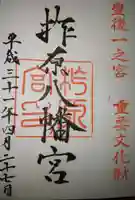 豊後一之宮 重要文化財
柞原八幡宮
平成三十一年四月二十七日